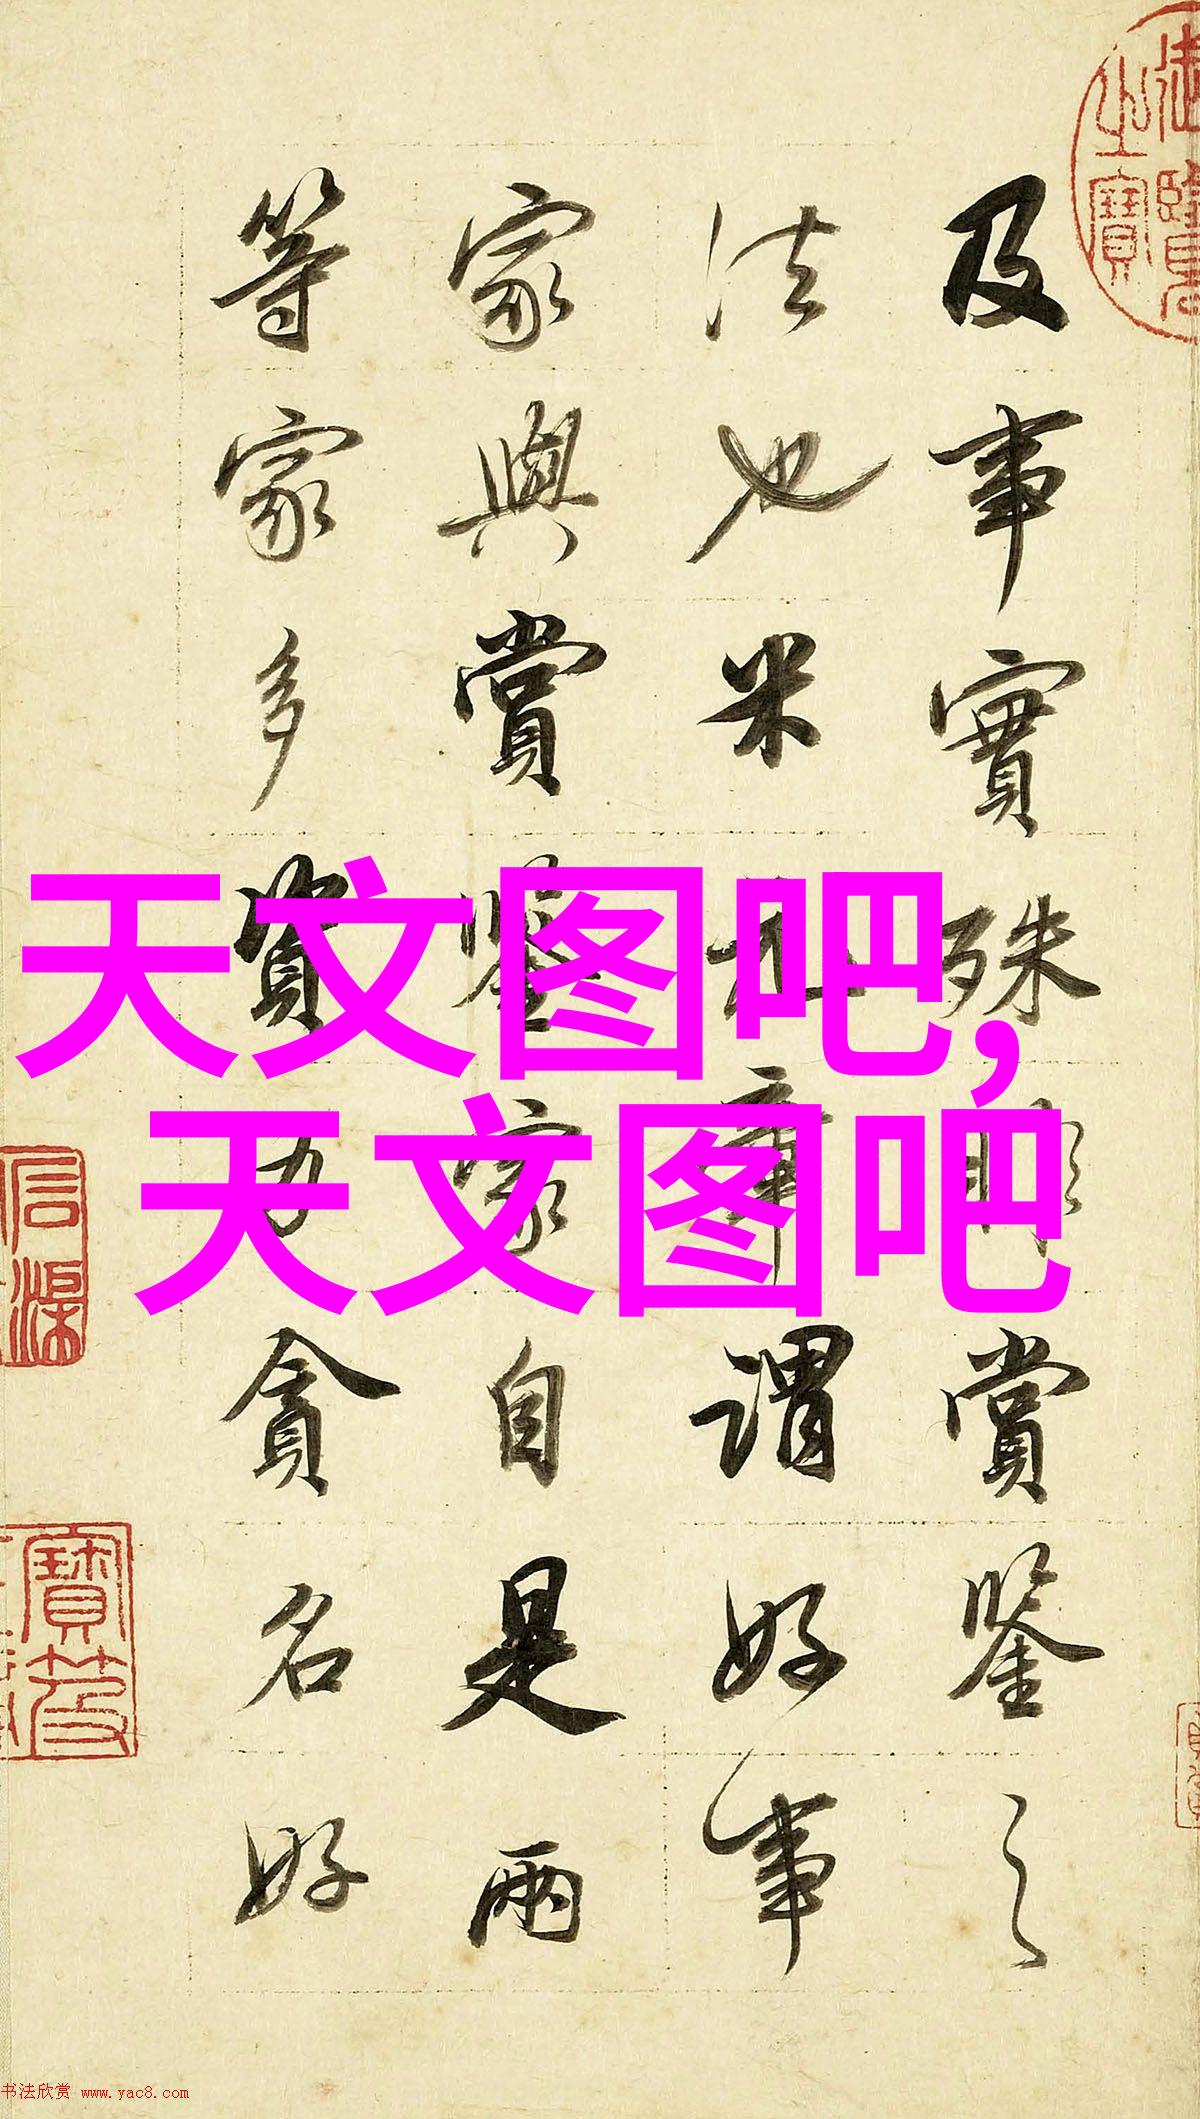 及事實殊賞鑒之
法也米元章謂好事
家與賞鑒家自是兩
等家多資力貪名好
天文图吧,
天文图吧
书法欣赏 www.yac8.com